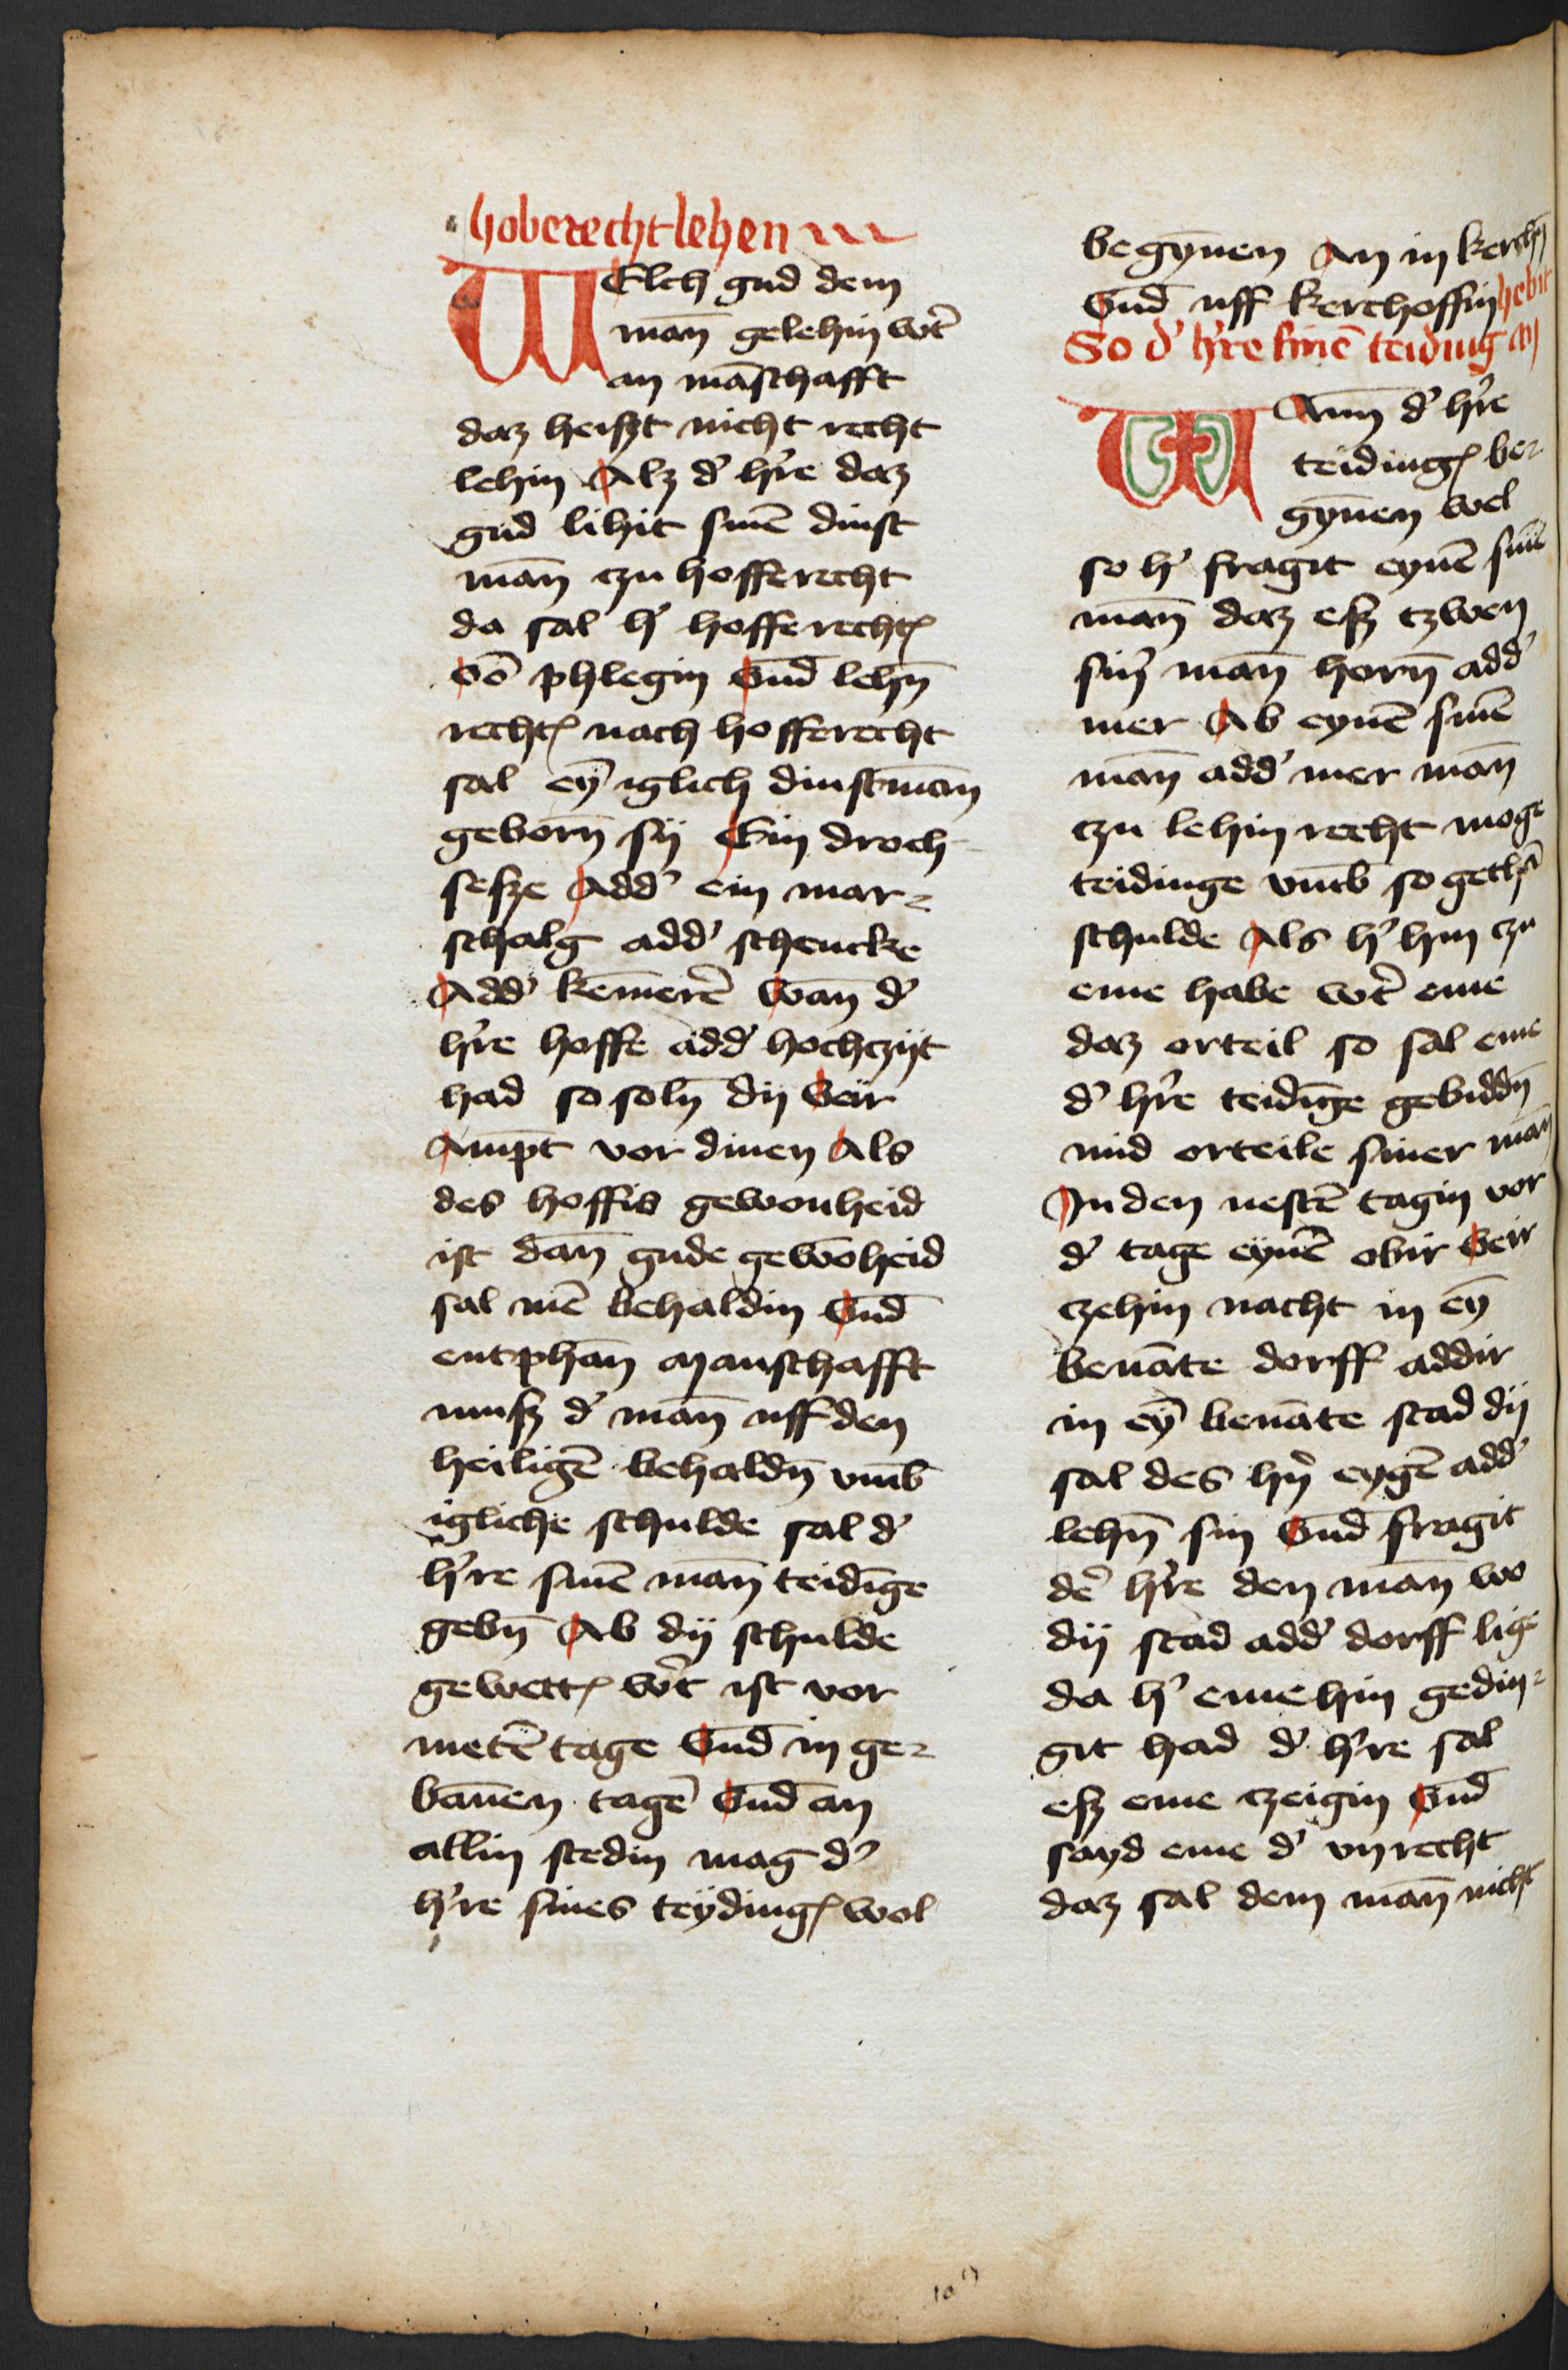 hoberecht lehen
WElch gud dem
man̄ gelehin wᵉt
an māschafft
daz heiſzt nicht recht
lehin Alz dʾ hʾre daz
gud lihit sinē dinst
man̄ czu hofferecht
da sal hʾ hofferechtꝭ
Vō phlegin Vnd̄ lehn̄
rechtꝭ nach hofferecht
sal eȳ iglich dinstman̄
geborn̄ sij Ein droch
seſze Addʾ ein mar⸗
schalg addʾ schencke
Addʾ kem̄erē Wan̄ dʾ
hʾre hoffe addʾ hochczijt
had so soln̄ dij Veir
Ampt vor dinen Als
des hoffis gewonheid
ist dan̄ gude gewōheid
sal mē behaldin Vnd̄
entphan̄ manschafft
muſz dʾ man̄ uff den
heiligē behaldn̄ vm̄b
igliche schulde sal dʾ
hʾre sinē man̄ teidīge
gebn̄ Ab dij schulde
gewettꝭ wᵉt ist vor
metē tage Vnd̄ in ge⸗
ban̄en tagē Vnd̄ an
allin stedin mag dʾ
hʾre sines teydingꝭ wol
begyn̄en An in kerchn̄
Vnd̄ uff kerchoffin
So dʾ hʾre sinē teiding an hebit
WAnn dʾ hʾre
teidingꝭ be⸗
gyn̄en wel
so hʾ fragit eynē sinē
man̄ daz eſz tzwen
sinʾ man̄ horn̄ addʾ
mer Ab eynē sinē
man̄ addʾ mer man̄
czu lehin recht moge
teidinge vm̄b so gethā
schulde Als hʾ hin czu
eme habe wᵉt eme
daz orteil so sal eme
dʾ hʾre teidīge gebiddn̄
mid orteile siner man̄
In den nestē tagin vor
dʾ tage eynē obir Veir
czehin nacht in eȳ
benāte dorff addir
in eȳ benāte stad dij
sal des hʾn̄ eygē addʾ
lehn̄ sin Vnd̄ fragit
dē hʾre den man̄ wo
dij stad addʾ dorff lige
da hʾ eme hin gedin⸗
git had dʾ hʾre sal
eſz eme czeigin Vnd̄
sayd eme dʾ vnrecht
daz sal dem man̄ nicht